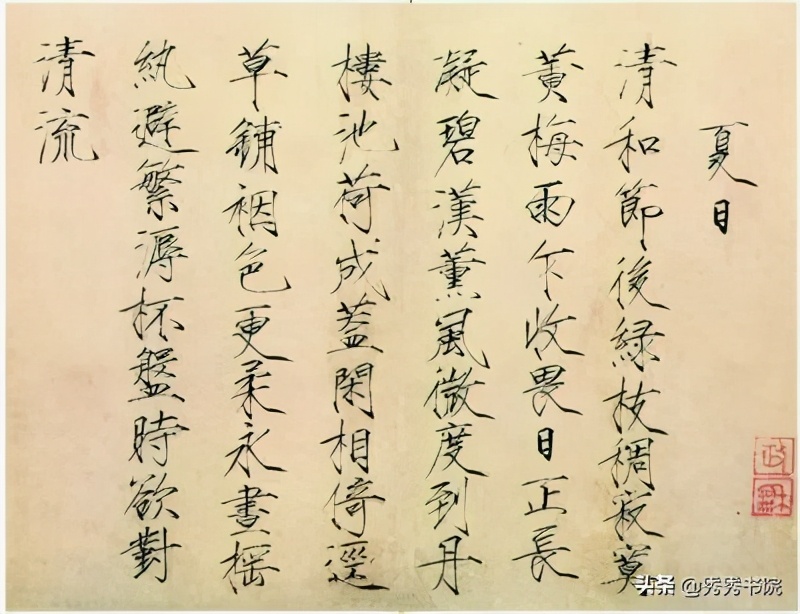 夏日
清和節後緑枝稠寂寞
黄梅雨乍收畏日正長
凝碧漢薰風微度到丹
樓池荷成蓋閑相倚逕
草鋪裀色更柔永晝搖
紈避繁溽杯盤時欲對
清流
头条 @秀秀书院